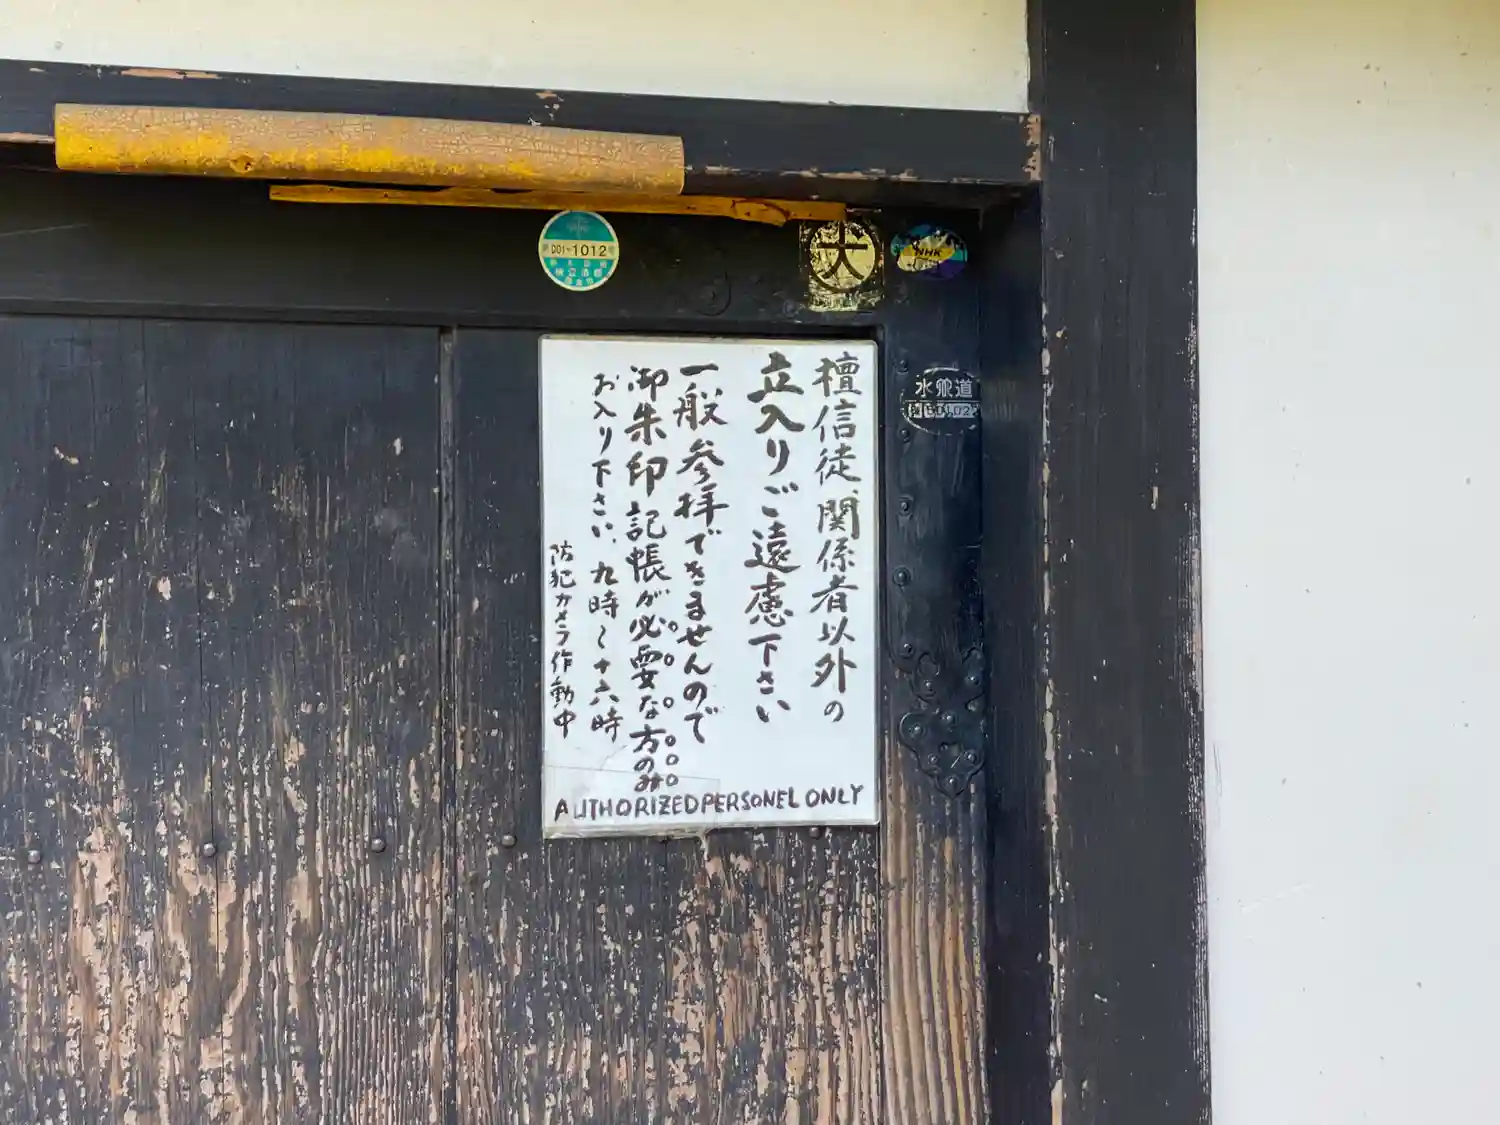 檀信徒、関係者以外の
立入りご遠慮下さい
一般参拝できませんので
御朱印記帳が必要な方のみ
お入り下さい、九時〜十六時
防犯カメラ作動中
AUTHORIZED PERSONEL ONLY
D01-1012
犬
NHK
水洗道